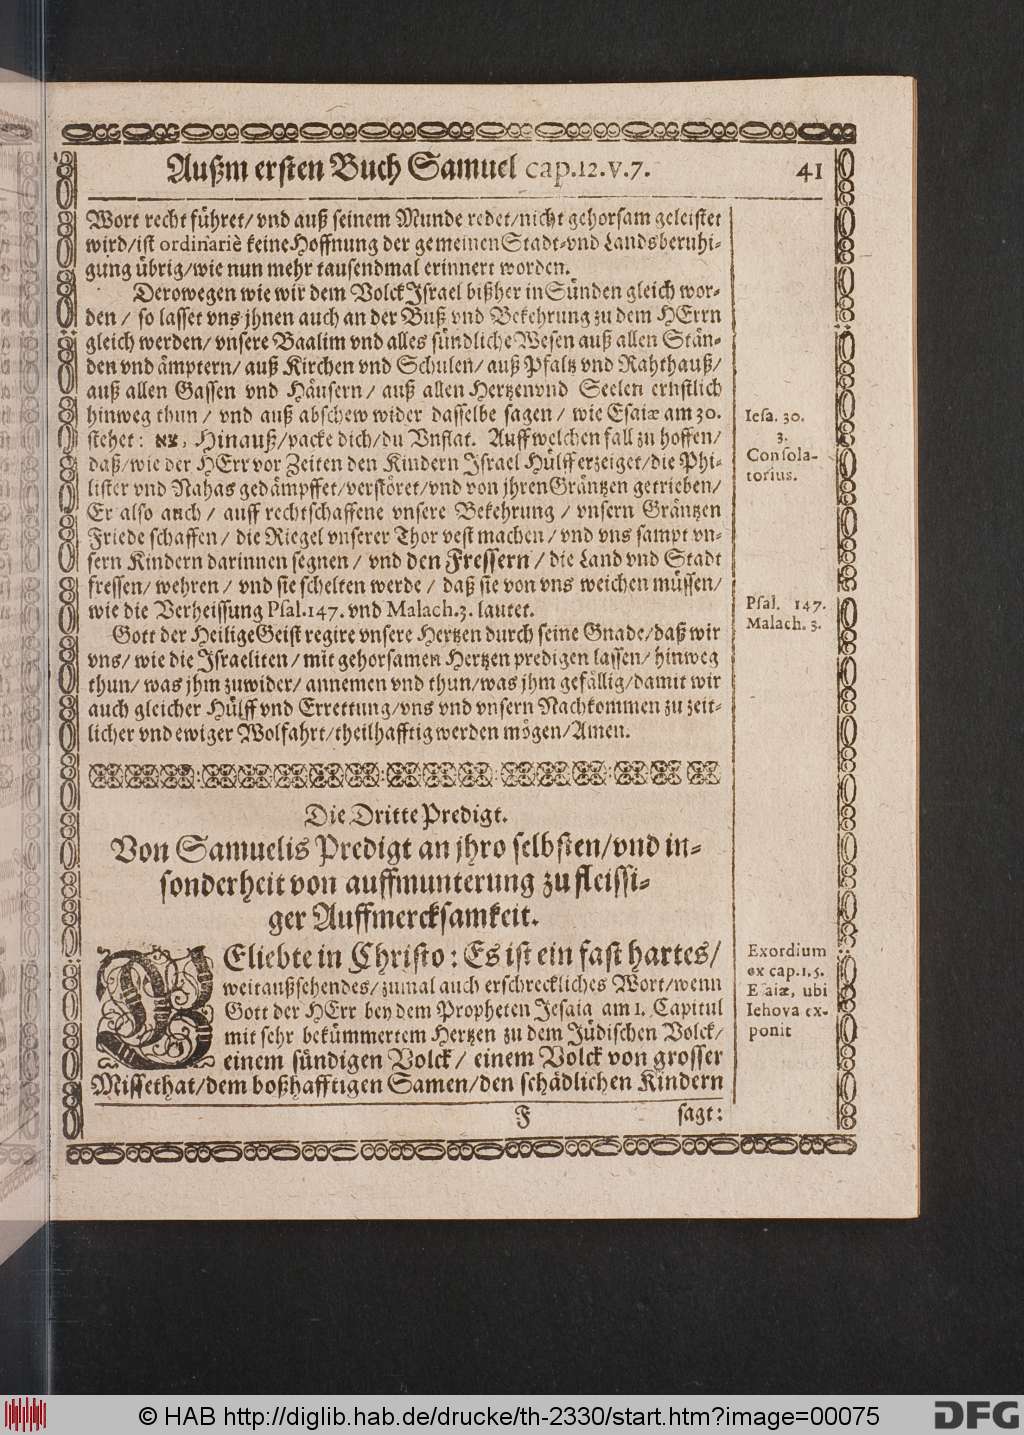 Außm ersten Buch Samuel cap.12.v.7. 41
Wort recht führet/ vnd auß seinem Munde redet/nicht gehorsam geleistet
wird/ist ordinariè keine Hoffnung der gemeinen Stadt-vnd Landsberuhi-
gung übrig/wie nun mehr tausendmal erinnert worden.
Derowegen wie wir dem Volck Israel bißher in Sünden gleich wor-
den / so lasset vns jhnen auch an der Buß vnd Bekehrung zu dem HErrn
gleich werden/ vnsere Baalim vnd alles sündliche Wesen auß allen Stän-
den vnd ämptern/ auß Kirchen vnd Schulen/ auß Pfaltz vnd Rahthauß/
auß allen Gassen vnd Häusern/ auß allen Hertzen vnd Seelen ernstlich
hinweg thun / vnd auß abschew wider dasselbe sagen / wie Esaiæ am 30.
stehet: צא, Hinauß/packe dich/du Vnflat. Auff welchen fall zu hoffen/
daß/wie der HErr vor Zeiten den Kindern Israel Hülff erzeiget/die Phi-
lister vnd Nahas gedämpffet/verstöret/vnd von jhren Gräntzen getrieben/
Er also auch / auff rechtschaffene vnsere Bekehrung / vnsern Gräntzen
Friede schaffen / die Riegel vnserer Thor vest machen / vnd vns sampt vn-
sern Kindern darinnen segnen / vnd den Fressern / die Land vnd Stadt
fressen/ wehren / vnd sie schelten werde / daß sie von vns weichen müssen/
wie die Verheissung Psal.147. vnd Malach.3. lautet.
Gott der Heilige Geist regire vnsere Hertzen durch seine Gnade/daß wir
vns/ wie die Israeliten / mit gehorsamen Hertzen predigen lassen/ hinweg
thun/ was jhm zuwider/ annemen vnd thun/was jhm gefällig/damit wir
auch gleicher Hülff vnd Errettung/vns vnd vnsern Nachkommen zu zeit-
licher vnd ewiger Wolfahrt/theilhafftig werden mögen/Amen.
Iesa. 30.
3.
Consola-
torius.
Psal. 147.
Malach. 3.
Die Dritte Predigt.
Von Samuelis Predigt an jhro selbsten/vnd in-
sonderheit von auffmunterung zu fleissi-
ger Auffmercksamkeit.
GEliebte in Christo: Es ist ein fast hartes/
weitaußsehendes/zumal auch erschreckliches Wort/wenn
Gott der HErr bey dem Propheten Jesaia am 1. Capitul
mit sehr bekümmertem Hertzen zu dem Jüdischen Volck/
einem sündigen Volck / einem Volck von grosser
Missethat/dem boßhafftigen Samen/den schädlichen Kindern
Exordium
ex cap.1,5.
Esaiæ, ubi
Iehova ex-
ponit
F sagt:
© HAB http://diglib.hab.de/drucke/th-2330/start.htm?image=00075 DFG